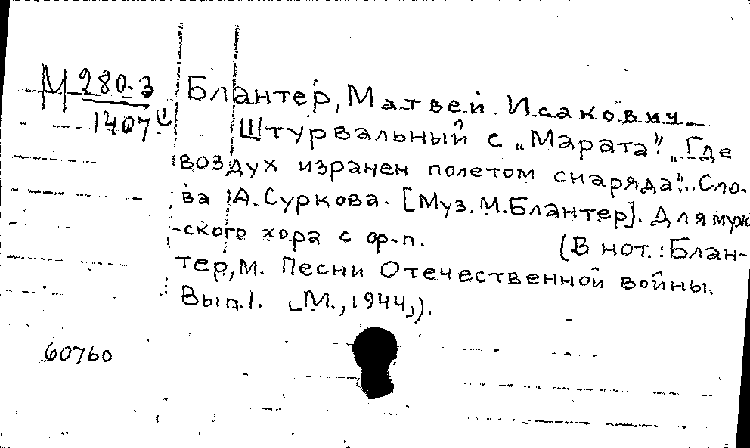 М 280-3
1407
Блантер, Матвей Исакович
Штурвальный с „Марата". „Где
воздух изранен полетом снаряда"... Сло-
ва А. Суркова. [Муз. М. Блантер]. Для муж
-ского хора с ф-п. (В нот.: Блан-
тер, М. Песни Отечественной войны.
Вып. 1. [М., 1944]).
60760